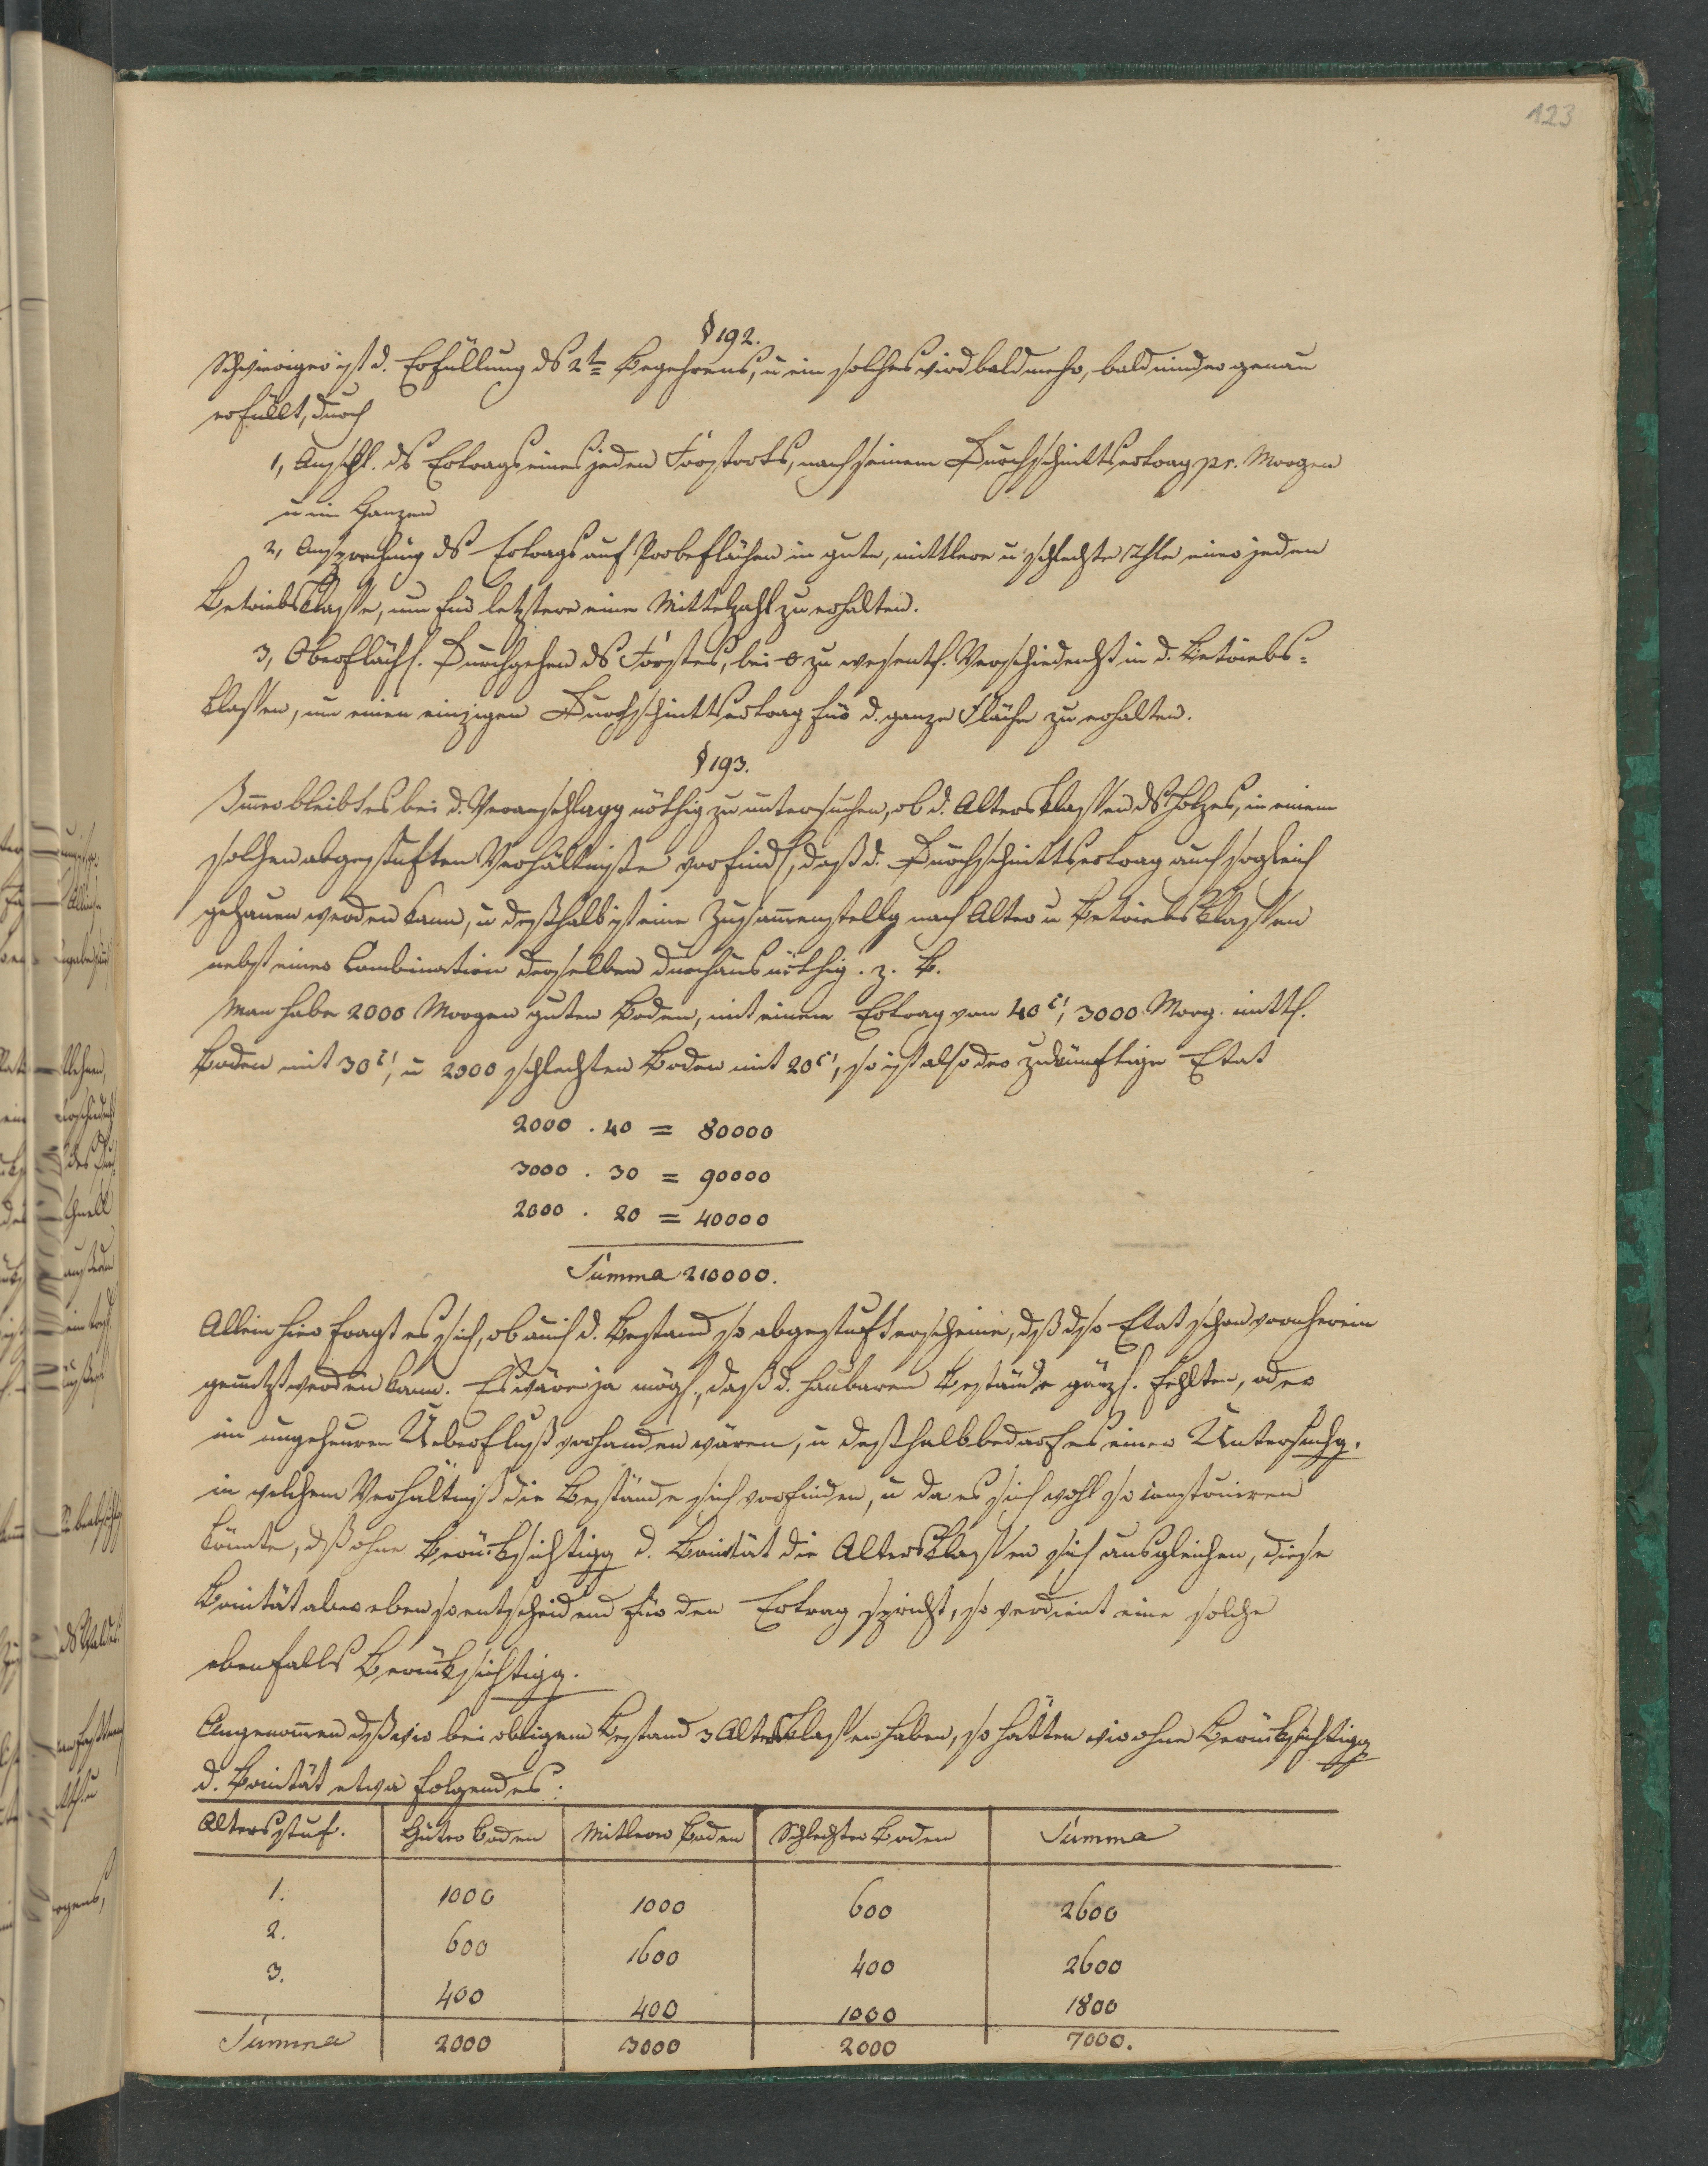 123
§ 192.
Schwieriger ist d. Erfüllung ds 2t Begehrens, u ein solches wird bald mehr, bald minder genau
erfüllt, durch
1, Anschl. ds Ertrags eines jeden Forstorts, nach seinem Durchschnittsertrag pr. Morgen
u im Ganzen
2, Ansprechung ds Ertrags auf Probeflächen in gute, mittlere u schlechte Thle einer jeden
Betriebsklasse, um für letztere eine Mittelzahl zu erhalten.
3, Oberflächl. Durchgehen ds Forstes, bei 0 zu wesentl. Verschiedenht in d. Betriebs=
klassen, um einen einzigen Durchschnittsertrag für d. ganze Fläche zu erhalten.
§ 193.
Immer bleibt es bei d. Veranschlagg nöthig zu untersuchen, ob d. Altersklassen ds Holzes, in einem
solchen abgestuften Verhältnisse vorfindl, daß d. Durchschnittsertrag auch sogleich
gehauen werden kann, u deßhalb ist eine Zusammenstellg nach Alter u Betriebsklassen
nebst einer Combination derselben durchaus nöthig. z. B.
Man habe 2000 Morgen guten Boden, mit einem Ertrag von 40 c', 3000 Morg. mittl.
Boden mit 30 c', u 2000 schlechten Boden mit 20 c', so ist also der zukünftige Etat
2000 . 40 = 80000
3000 . 30 = 90000
2000 . 20 = 40000
Summa 210000.
Allein hier fragt es sich, ob auch d. Bestand so abgestuft erscheine, dß dsr Etat schon vornherein
genutzt werden kann. Es wäre ja mögl., daß d. haubaren Bestände gänzl. fehlten, oder
im ungeheuren Ueberfluß vorhanden wären, u deßhalb bedarf es einer Untersuchg.
in welchem Verhältniß die Bestände sich vorfinden, u da es sich wohl so construiren
könnte, dß ohne Berücksichtigg d. Bonität die Altersklassen sich ausgleichen, diese
Bonität aber eben so entscheidend für den Ertrag spricht, so verdient eine solche
ebenfalls Berücksichtigg.
Angenommen dß wir bei obigem Bestand 3 Altersklassen haben, so hätten wir ohne Berücksichtigg
d. Bonität etwa folgendes:
Altersstuf. Guter Boden Mitlerer Boden Schlechter Boden Summa
1. 1000 1000 600 2600
2. 600 1600 400 2600
3. 400 400 1000 1800
Summa 2000 3000 2000 7000.